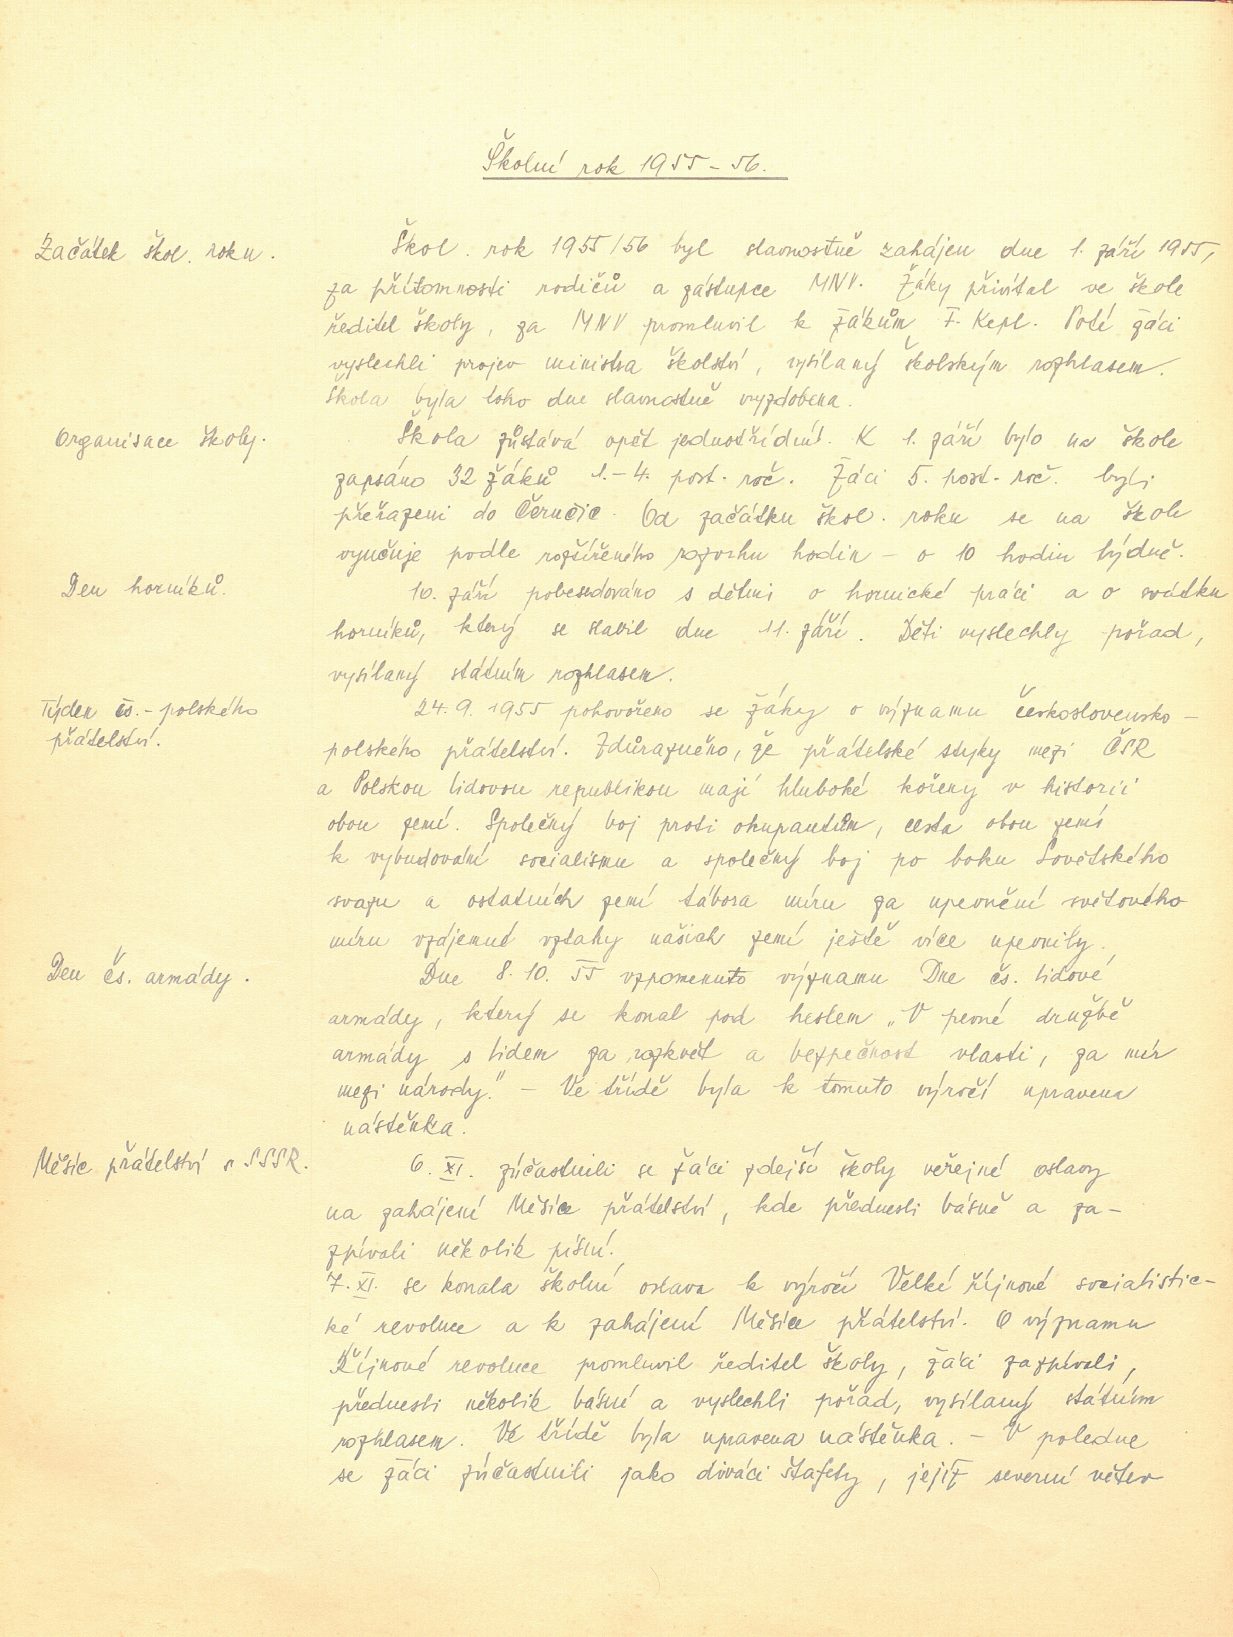 Školní rok 1955-56.
Začátek škol. roku.
Škol. rok 1955/56 byl slavnostně zahájen dne 1. září 1955,
za přítomnosti rodičů a zástupce MNV. Žáky přivítal ve škole
ředitel školy, za MNV promluvil k žákům F. Kepl. Poté žáci
vyslechli projev ministra školství, vysílaný školským rozhlasem.
Škola byla toho dne slavnostně vyzdobena.
Organisace školy.
Škola zůstává opět jednotřídní. K 1. září bylo na škole
zapsáno 32 žáků 1.-4. post. roč. Žáci 5. post. roč. byli
přeřazeni do Černčic. Od začátku škol. roku se na škole
vyučuje podle rozšířeného rozvrhu hodin - o 10 hodin týdně.
Den horníků.
10. září pobesedováno s dětmi o hornické práci a o svátku
horníků, který se slavil dne 11. září. Děti vyslechly pořad,
vysílaný státním rozhlasem.
Týden čs.-polského
přátelství.
24. 9. 1955 pohovořeno se žáky o významu československo-
polského přátelství. Zdůrazněno, že přátelské styky mezi ČSR
a Polskou lidovou republikou mají hluboké kořeny v historii
obou zemí. Společný boj proti okupantům, cesta obou zemí
k vybudování socialismu a společný boj po boku Sovětského
svazu a ostatních zemí tábora míru za upevnění světového
míru vzájemné vztahy našich zemí ještě více upevnily.
Den čs. armády.
Dne 8. 10. 55 vzpomenuto významu Dne čs. lidové
armády, který se konal pod heslem „V pevné družbě
armády s lidem za rozkvět a bezpečnost vlasti, za mír
mezi národy." - Ve třídě byla k tomuto výročí upravena
nástěnka.
Měsíc přátelství s SSSR.
6. XI. zúčastnili se žáci zdejší školy veřejné oslavy
na zahájení Měsíce přátelství, kde přednesli básně a za-
zpívali několik písní.
7. XI. se konala školní oslava k výročí Velké říjnové socialistic-
ké revoluce a k zahájení Měsíce přátelství. O významu
Říjnové revoluce promluvil ředitel školy, žáci zazpívali,
přednesli několik básní a vyslechli pořad, vysílaný státním
rozhlasem. Ve třídě byla upravena nástěnka. - V poledne
se žáci zúčastnili jako diváci štafety, jejíž severní větev